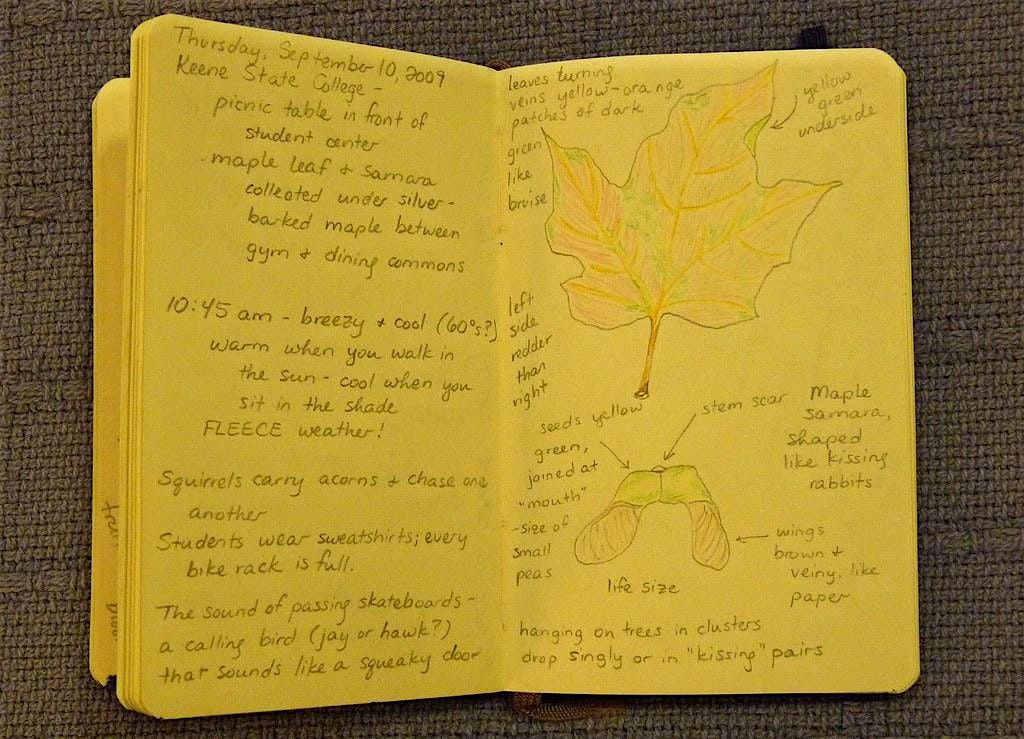 Thursday, September 10, 2009
Keene State College -
picnic table in front of
student center
maple leaf & samara
collected under silver-
barked maple between
gym & dining commons
10:45 am - breezy & cool (60°s?)
warm when you walk in
the sun - cool when you
sit in the shade
FLEECE weather!
Squirrels carry acorns & chase one
another
Students wear sweatshirts; every
bike rack is full.
The sound of passing skateboards -
a calling bird (jay or hawk?)
that sounds like a squeaky door
leaves turning
veins yellow-orange
patches of dark
green
like
bruise
yellow
green
underside
left
side
redder
than
right
seeds yellow
green,
joined at
"mouth"
-size of
small
peas
stem scar
Maple
samara,
shaped
like kissing
rabbits
wings
brown &
veiny, like
paper
life size
hanging on trees in clusters
drop singly or in "kissing" pairs